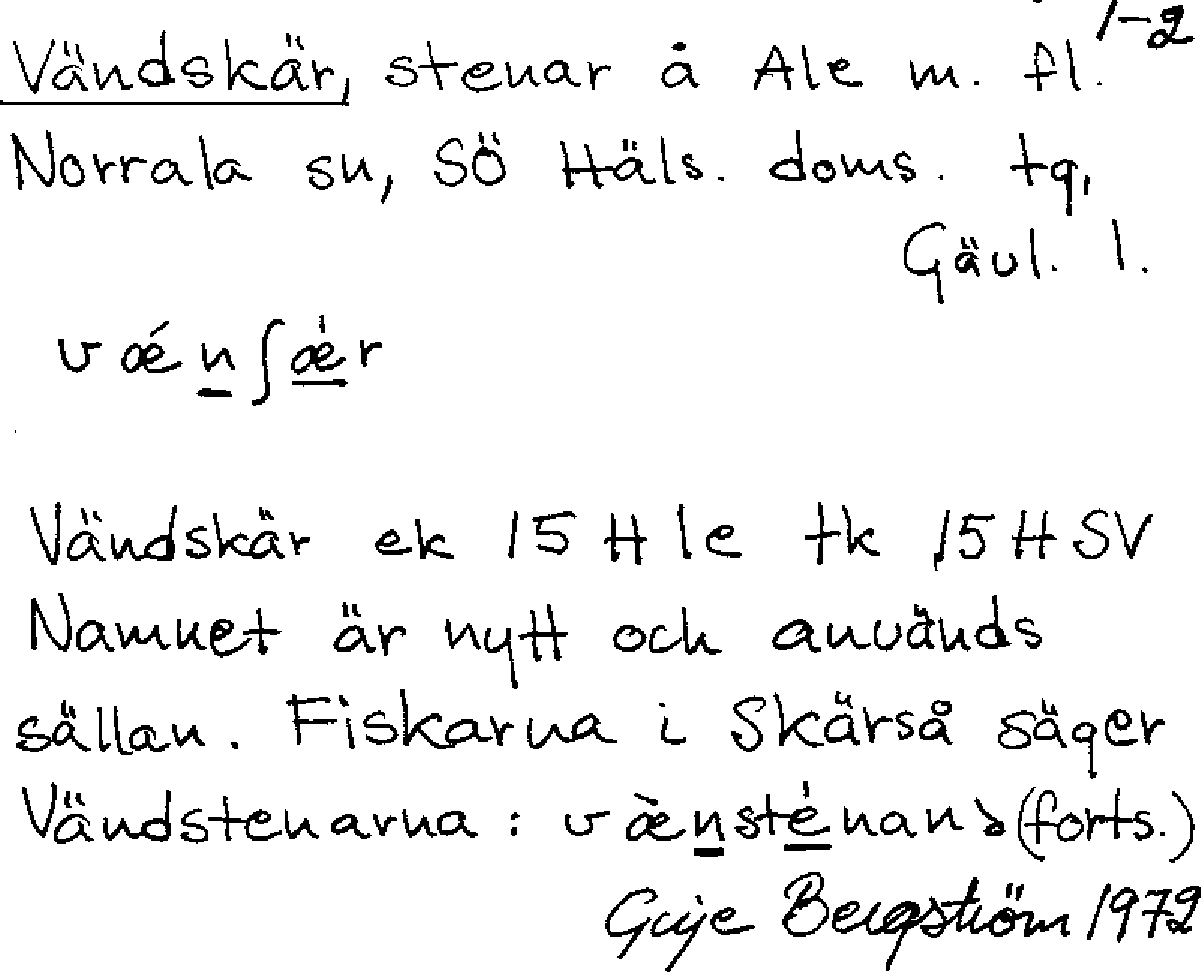 1-2
Vändskär, stenar å Ale m. fl.
Norrala sn, SÖ Häls. doms. tg,
Gävl. l.
vǽnʃæ̀r
Vändskär ek 15 H le tk 15 H SV
Namnet är nytt och används
sällan. Fiskarna i Skärså säger
Vändstenarna : (forts.)
Bergström 1972